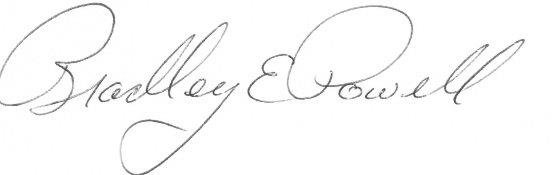 Bradley E Powell